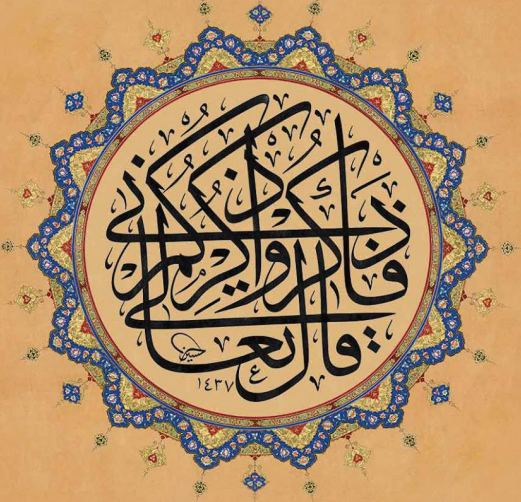 قال تعالى
فَاذْكُرُونِى أَذْكُرْكُمْ
١٤٣٧